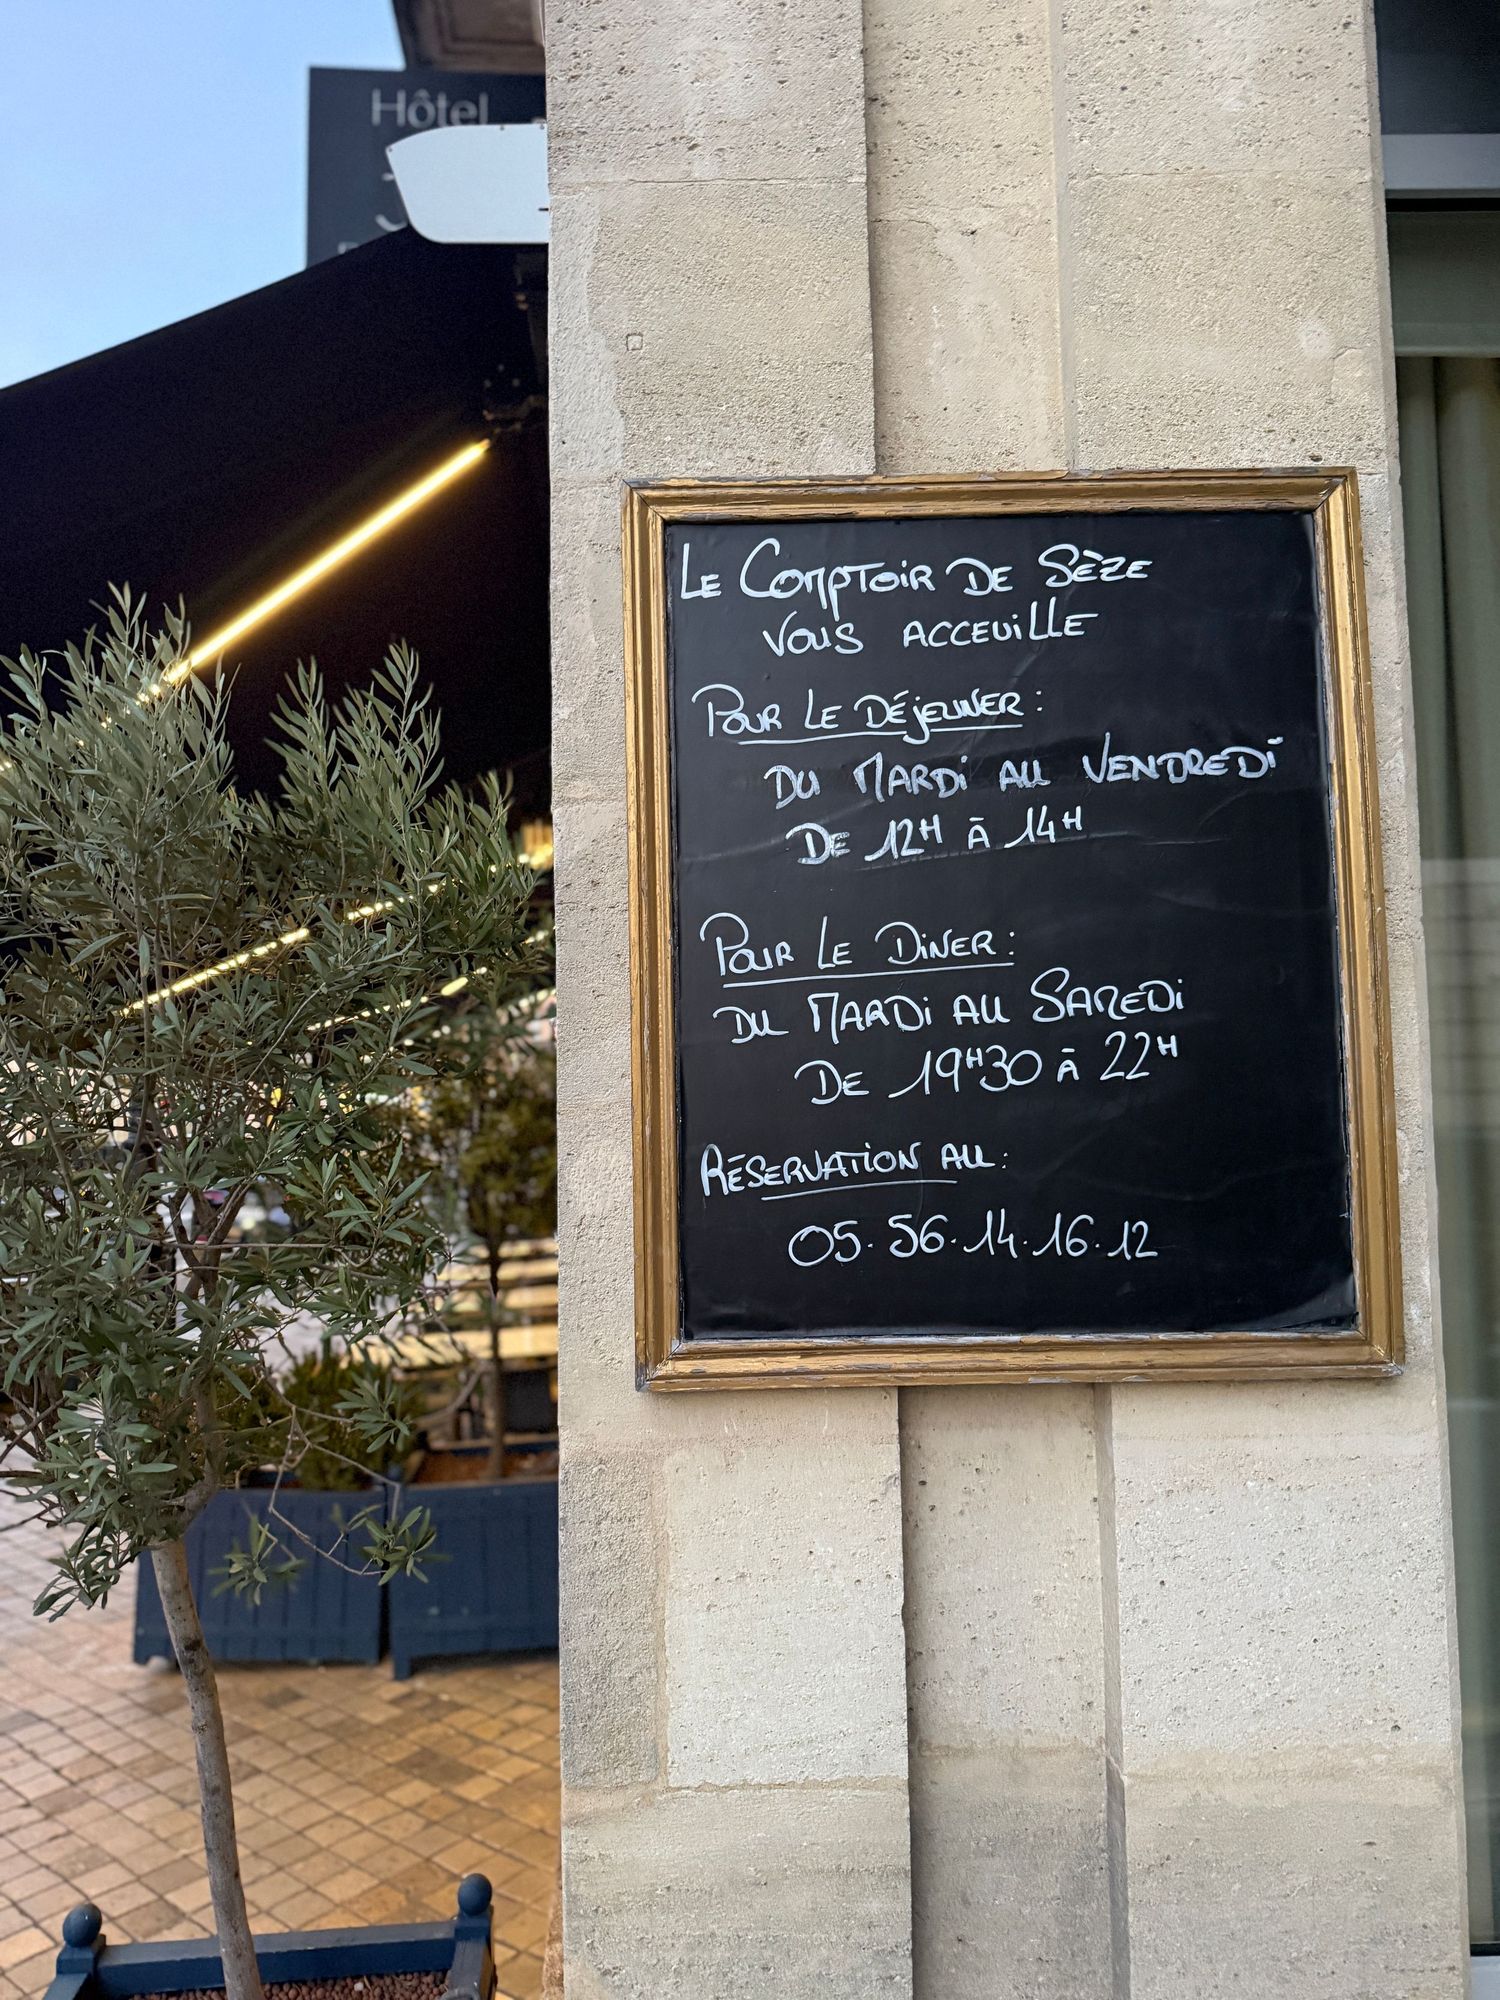 Hôtel
Le Comptoir de Sèze
vous acceuille
Pour le Déjeuner :
du Mardi au Vendredi
de 12H à 14H
Pour le Diner :
du Mardi au Samedi
de 19H30 à 22H
Réservation au :
05.56.14.16.12